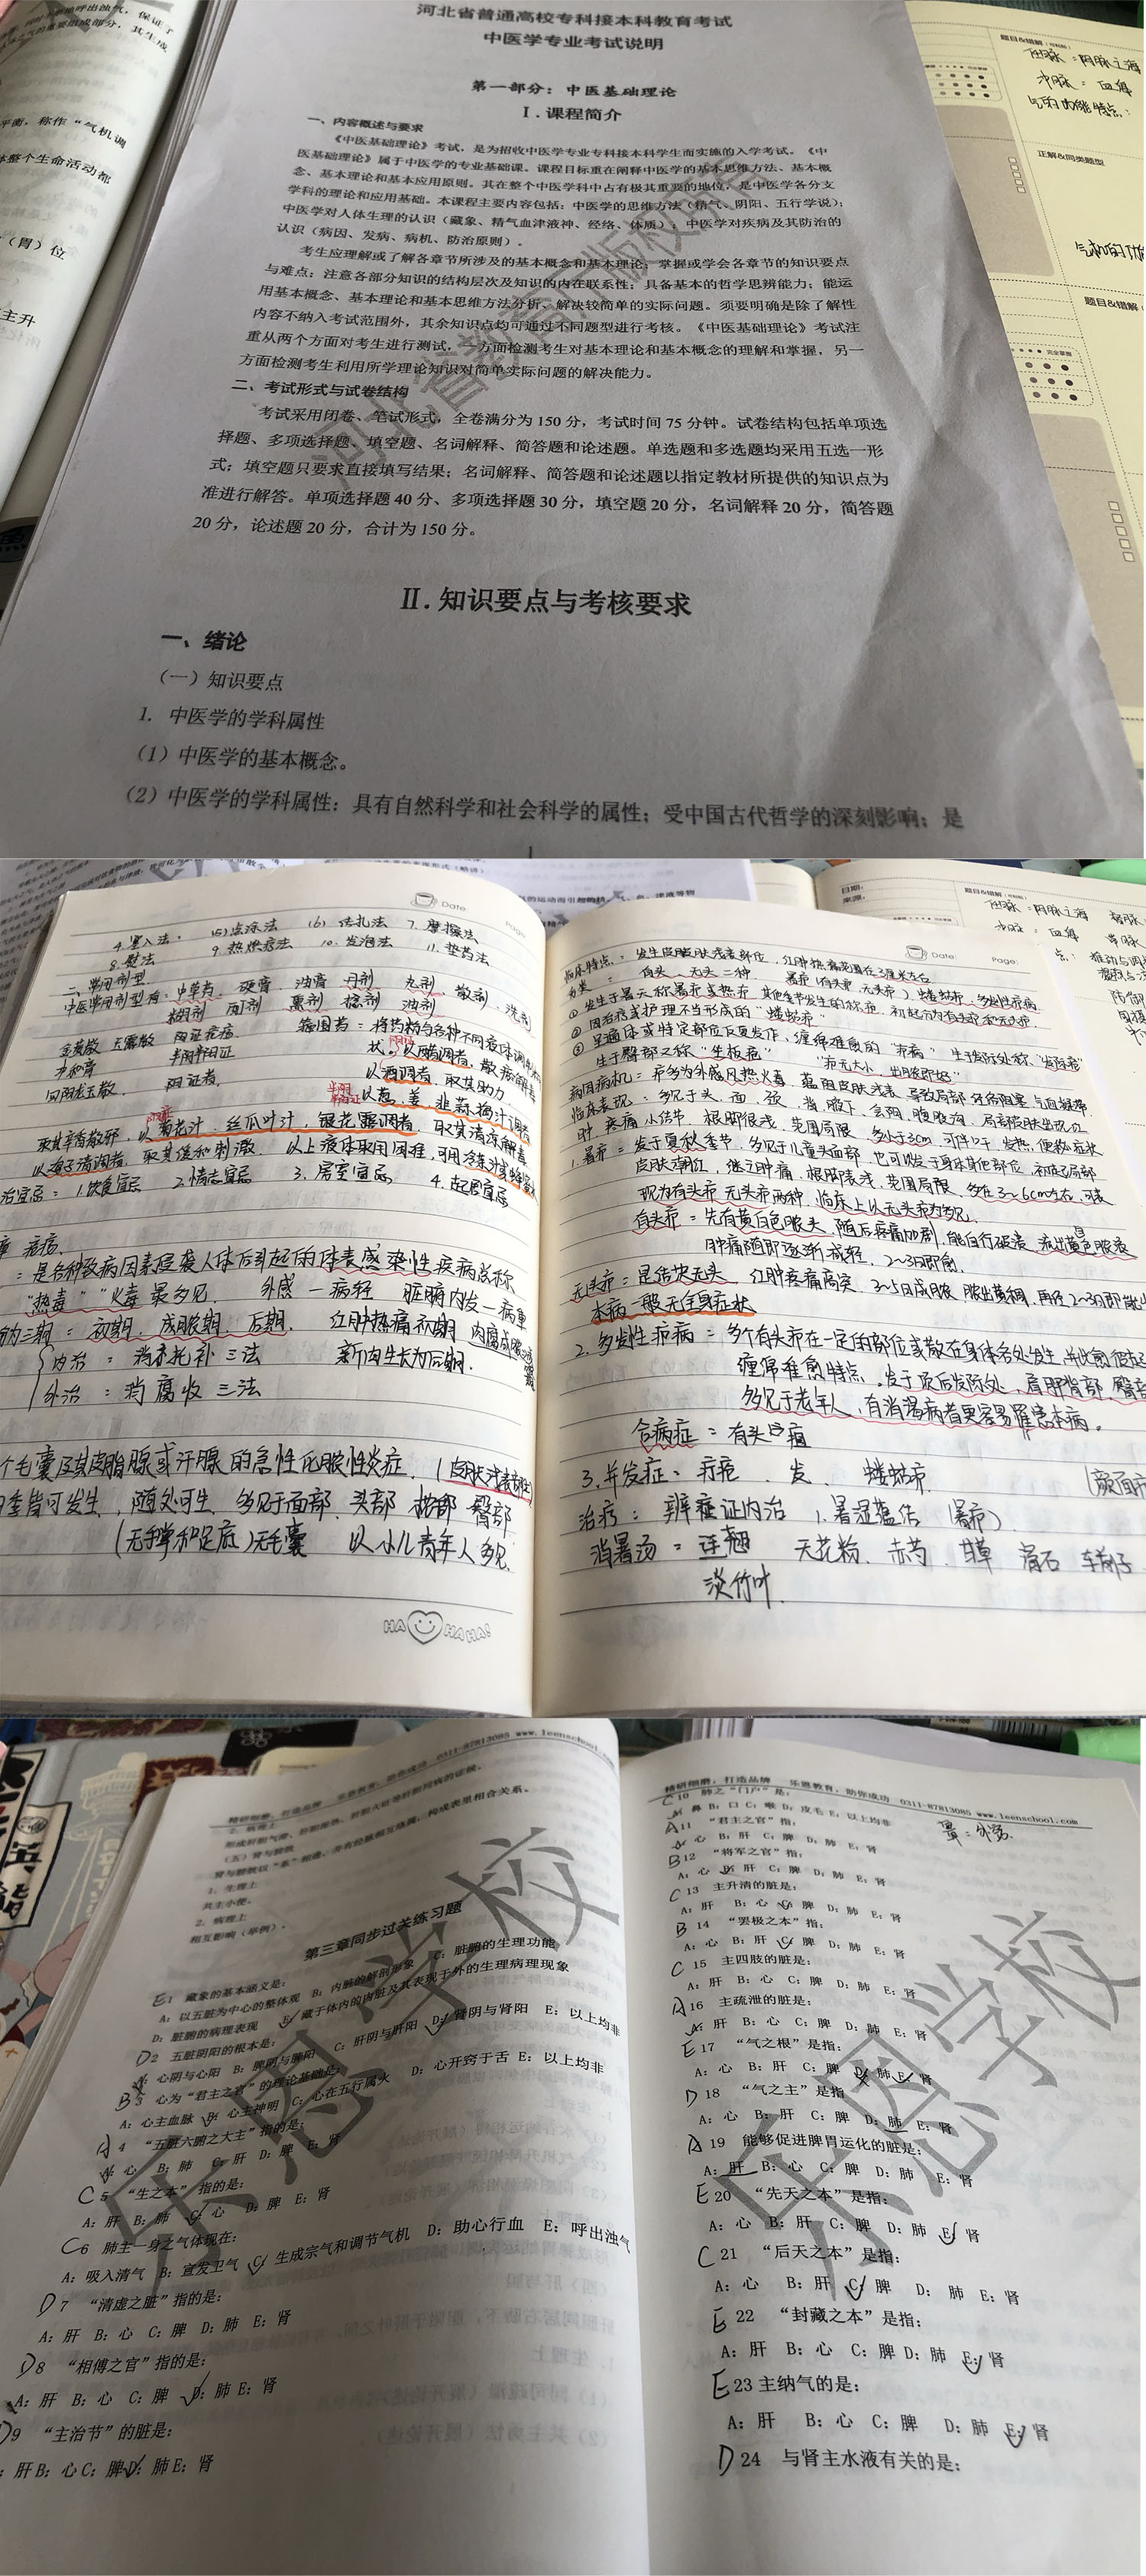 河北省普通高校专科接本科教育考试
中医学专业考试说明
第一部分：中医基础理论
Ⅰ.课程简介
一、内容概述与要求
《中医基础理论》考试，是为招收中医学专业专科接本科学生而实施的入学考试。《中
医基础理论》属于中医学的专业基础课。课程目标重在阐释中医学的基本思维方法、基本概
念、基本理论和基本应用原则。其在整个中医学科中占有极其重要的地位，是中医学各分支
学科的理论和应用基础。本课程主要内容包括：中医学的思维方法（精气、阴阳、五行学说）；
中医学对人体生理的认识（藏象、精气血津液神、经络、体质）；中医学对疾病及其防治的
认识（病因、发病、病机、防治原则）。
考生应理解或了解各章节所涉及的基本概念和基本理论；掌握或学会各章节的知识要点
与难点；注意各部分知识的结构层次及知识的内在联系性；具备基本的哲学思辨能力；能运
用基本概念、基本理论和基本思维方法分析、解决较简单的实际问题。须要明确是除了解性
内容不纳入考试范围外，其余知识点均可通过不同题型进行考核。《中医基础理论》考试注
重从两个方面对考生进行测试，一方面检测考生对基本理论和基本概念的理解和掌握，另一
方面检测考生利用所学理论知识对简单实际问题的解决能力。
二、考试形式与试卷结构
考试采用闭卷、笔试形式，全卷满分为 150 分，考试时间 75 分钟。试卷结构包括单项选
择题、多项选择题、填空题、名词解释、简答题和论述题。单选题和多选题均采用五选一形
式；填空题只要求直接填写结果；名词解释、简答题和论述题以指定教材所提供的知识点为
准进行解答。单项选择题 40 分、多项选择题 30 分，填空题 20 分，名词解释 20 分，简答题
20 分，论述题 20 分，合计为 150 分。
Ⅱ.知识要点与考核要求
一、绪论
（一）知识要点
1. 中医学的学科属性
（1）中医学的基本概念。
（2）中医学的学科属性：具有自然科学和社会科学的属性；受中国古代哲学的深刻影响；是
平衡，称作“气机调
整个生命活动都
（胃）位
主升
题目&错解
任脉：阴脉之海
冲脉：血海
气的功能特点：
正解&同类题型
题目&错解
Date
5)点涂法 (6) 7.摩擦法
8.熨法 9.热烘疗法 10.发泡法 11.热药法
二、常用剂型
中医常用剂型有：中草药 硬膏 油膏 丹剂 丸剂 散剂 洗剂
糊剂 面剂 熏剂 油剂
金黄散 玉露散 阳证疮疡 箍围药：将药粉与各种不同液体调
半阴半阳证 以醋调者，散瘀解毒
回阳玉龙散 阴证者 以酒调者，取其助力
以葱、姜、韭蒜捣汁调者
取其辛香散邪，以菊花汁、丝瓜叶汁、银花露调者，取其清凉解毒
以鸡子清调者，取其缓和刺激 以上液体取用困难，可用冷茶汁
治宜忌：1.饮食宜忌 2.情志宜忌 3.居室宜忌 4.起居宜忌
章 疮疡
：是各种致病因素侵袭人体后引起的体表感染性疾病总称
“热毒”“火毒”最多见 外感—病轻 脏腑内发—病重
的三期：初期、成脓期、后期 红肿热痛初期
内治：消托补三法 新肉生长为后期
外治：消腐收三法
个毛囊及其皮脂腺或汗腺的急性化脓性炎症
季皆可发生，随处可生 多见于面部 头部 臀部
(无手掌和足底)无毛囊 以小儿青年人多见
HA HA HA!
Date Page:
分类：有头、无头二种
①发生于暑天称暑疖或热疖，其他季节发生的称疖，初起分为有头疖和无头疖
②因治疗或护理不当形成的“蝼蛄疖”
③呈遍体或特定部位反复发作，缠绵难愈的“疖病” 生于发际处称“发际疮”
生于臀部又称“坐板疮” “疖无大小，出脓即好”
1.暑疖：发于夏秋季节，多见于儿童头面部，也可发于身体其他部位，初起局部
皮肤潮红，继之肿痛，根脚很浅，范围局限，多在3~6cm左右，可表
现为有头疖、无头疖两种，临床上以无头疖为多见
有头疖：先有黄白色脓头，随后疼痛加剧，能自行破溃，流出黄色脓液
肿痛随即逐渐减轻，2~3日即愈
无头疖：是结块无头，红肿疼痛高突，3~5日成脓，脓出黄稠，再经2~3日即
本病一般无全身症状
2.多发性疖病：多个有头疖在一定的部位或散在身体各处发生，
缠绵难愈特点，发于项后发际处，肩胛背部、臀
多见于老年人，有消渴病者更容易罹患本病。
合病症：有头疽
3.并发症：疔疮、发、蝼蛄疖
治疗：辨证内治 1.暑湿蕴结（暑疖）
消暑汤：连翘 天花粉、赤芍、甘草 滑石 车前子
淡竹叶
乐恩学校
相互影响（举例）。
第三章同步过关练习题
E1 藏象的基本涵义是：
A：以五脏为中心的整体观 B：内脏的解剖形象 C：脏腑的生理功能
D：脏腑的病理表现 E：藏于体内的内脏及其表现于外的生理病理现象
D2 五脏阴阳的根本是：
A：心阴与心阳 B：脾阴与脾阳 C：肝阴与肝阳 D：肾阴与肾阳 E：以上均非
B3 心为“君主之官”的理论基础是：
A：心主血脉 B：心主神明 C：心在五行属火 D：心开窍于舌 E：以上均非
A4 “五脏六腑之大主”指的是：
A：心 B：肺 C：肝 D：脾 E：肾
C5 “生之本”指的是：
A：肝 B：肺 C：心 D：脾 E：肾
C6 肺主一身之气体现在：
A：吸入清气 B：宣发卫气 C：生成宗气和调节气机 D：助心行血 E：呼出浊气
D7 “清虚之脏”指的是：
A：肝 B：心 C：脾 D：肺 E：肾
D8 “相傅之官”指的是：
A：肝 B：心 C：脾 D：肺 E：肾
D9 “主治节”的脏是：
：肝 B：心 C：脾 D：肺 E：肾
精研细磨，打造品牌 乐恩教育，助你成功 0311-87813085 www.leenschool.com
C10 肺之“门户”是：
A：鼻 B：口 C：喉 D：皮毛 E：以上均非
A11 “君主之官”指：
A：心 B：肝 C：脾 D：肺 E：肾
B12 “将军之官”指：
A：心 B：肝 C：脾 D：肺 E：肾
C13 主升清的脏是：
A：肝 B：心 C：脾 D：肺 E：肾
B14 “罢极之本”指：
A：心 B：肝 C：脾 D：肺 E：肾
C15 主四肢的脏是：
A：肝 B：心 C：脾 D：肺 E：肾
A16 主疏泄的脏是：
A：肝 B：心 C：脾 D：肺 E：肾
E17 “气之根”是指：
A：心 B：肝 C：脾 D：肺 E：肾
D18 “气之主”是指
A：心 B：肝 C：脾 D：肺 E：肾
A19 能够促进脾胃运化的脏是：
A：肝 B：心 C：脾 D：肺 E：肾
E20 “先天之本”是指：
A：心 B：肝 C：脾 D：肺 E：肾
C21 “后天之本”是指：
A：心 B：肝 C：脾 D：肺 E：肾
E22 “封藏之本”是指：
A：肝 B：心 C：脾 D：肺 E：肾
E23 主纳气的是：
A：肝 B：心 C：脾 D：肺 E：肾
D24 与肾主水液有关的是：
乐恩学校